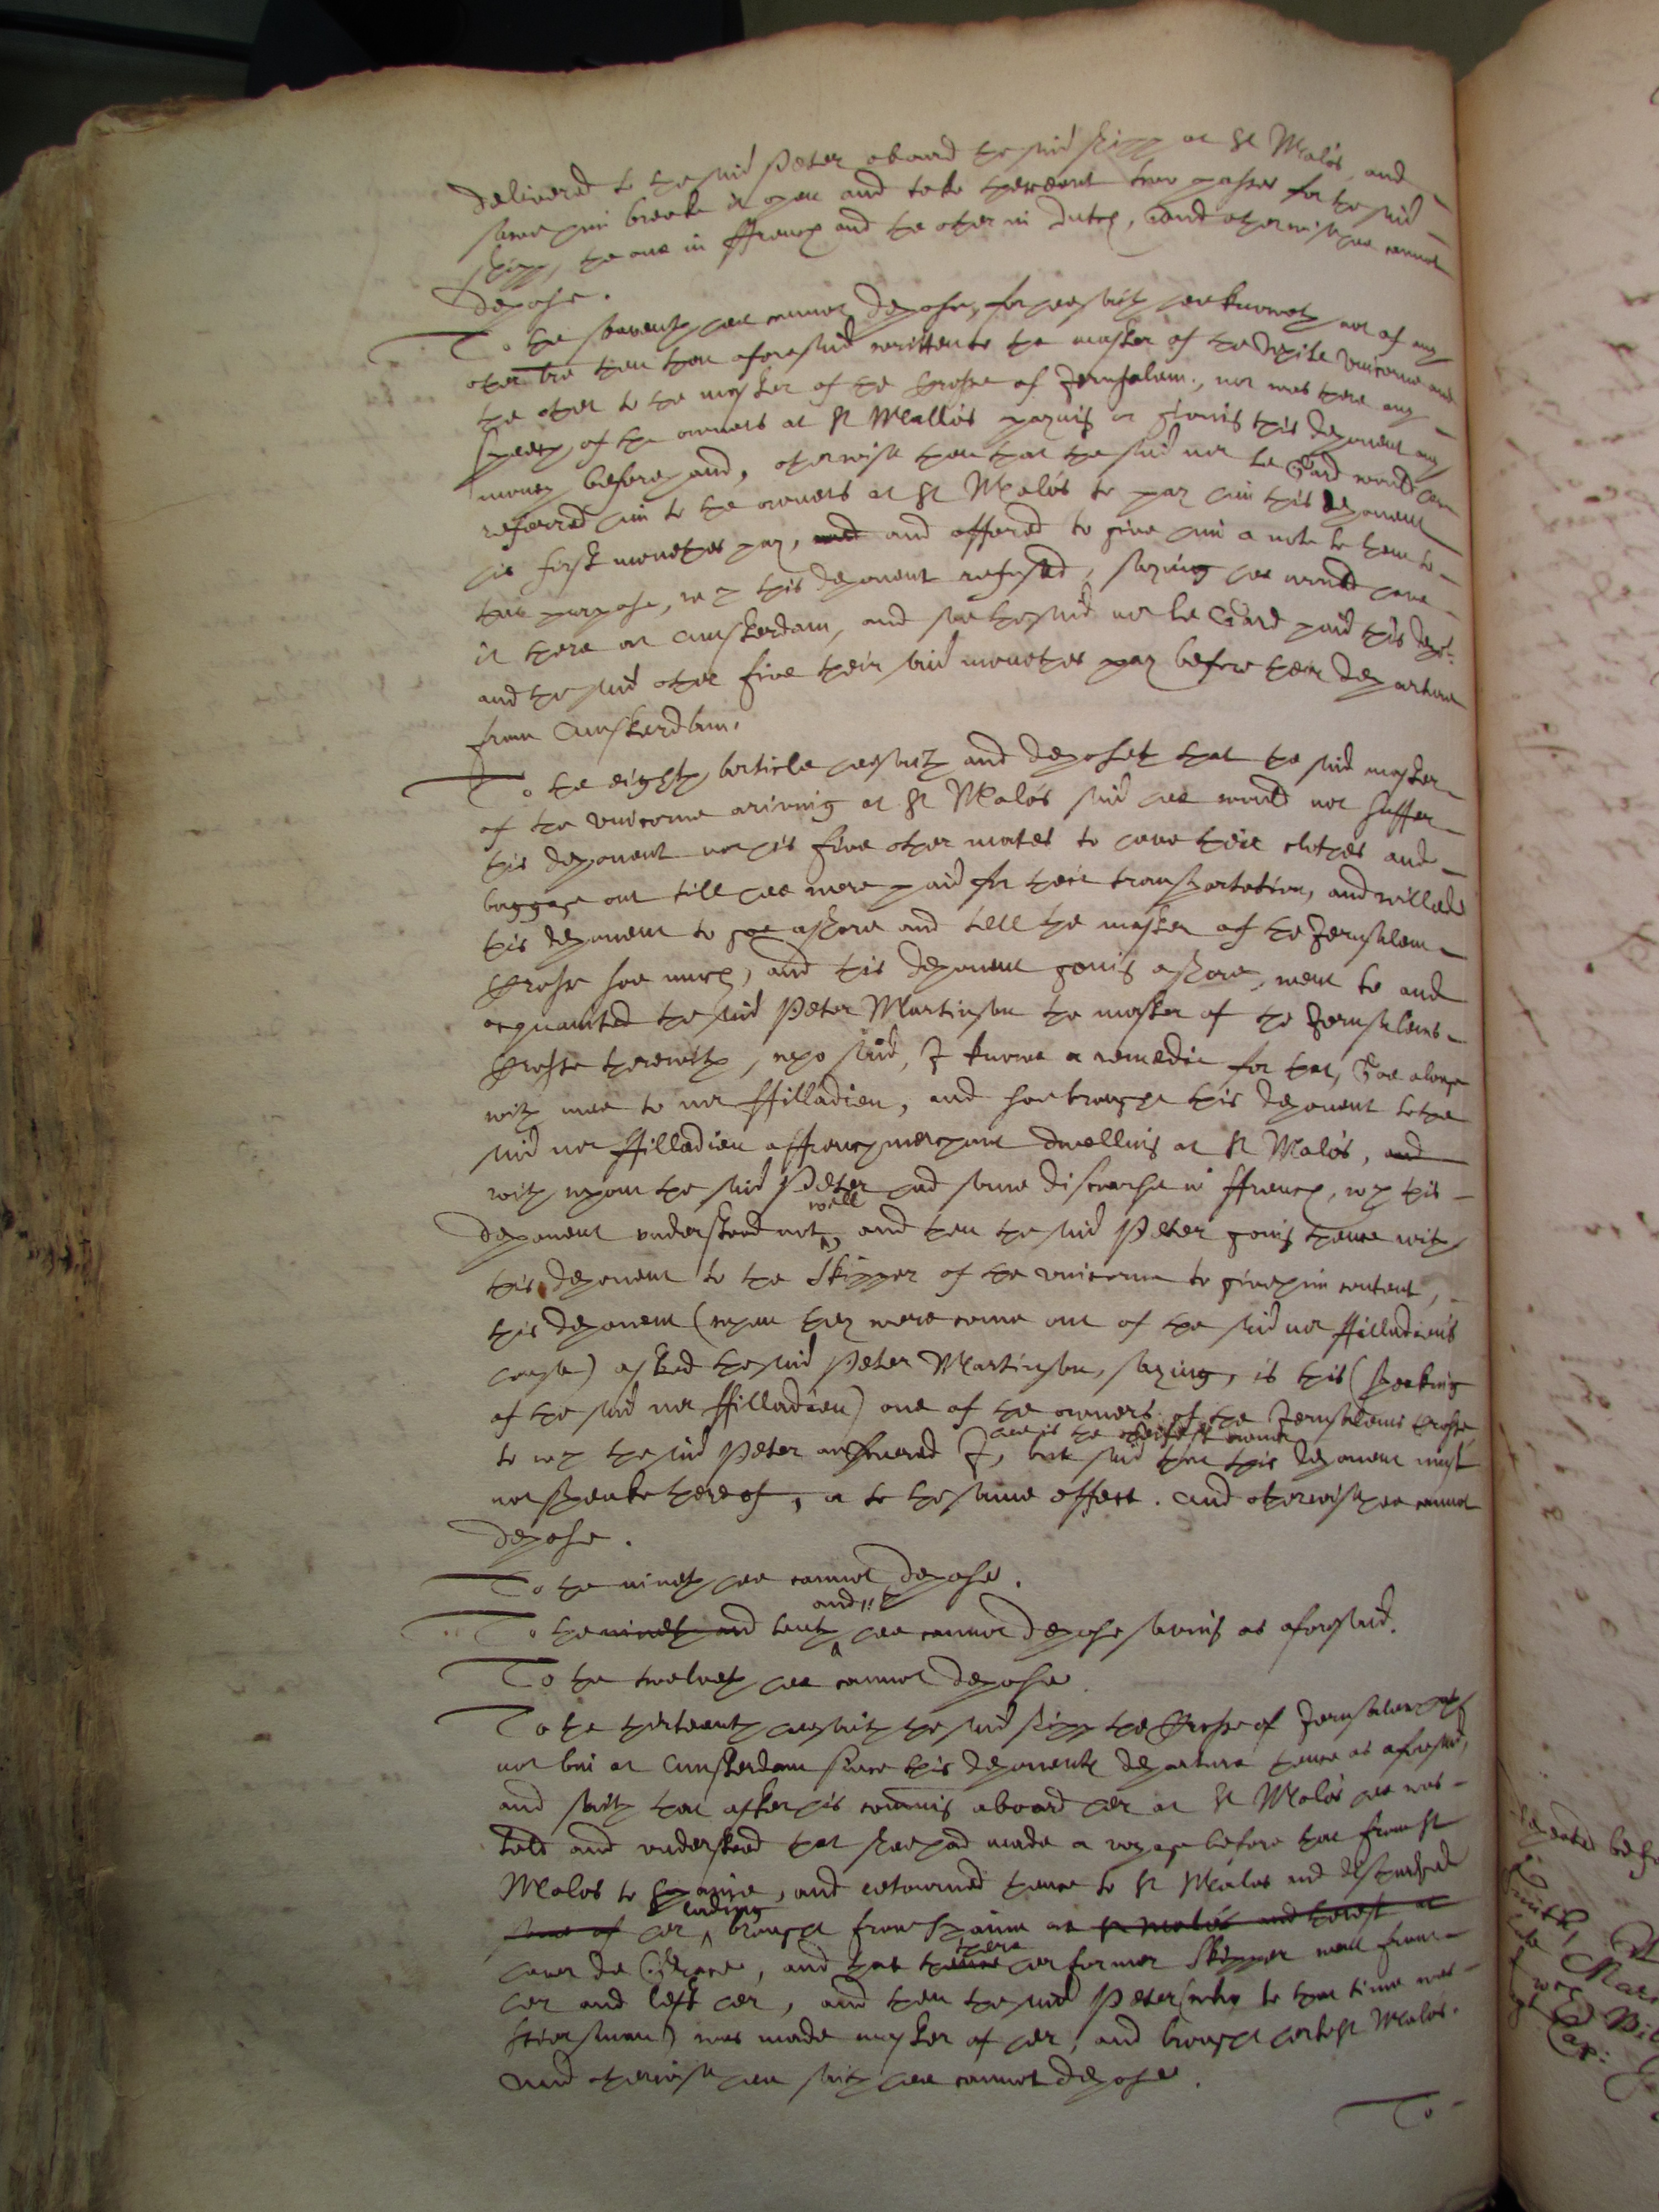 delivered to the said Peter aboard the said shipp at St Malós, and
sawe him breake it open and take thereout two passes for the said
shipp, the one in ffrench and the other in dutch, and otherwise hee cannot
depose.
To the seaventh hee cannot depose, for hee saith hee knoweth not of any
other tre then that aforesaid written to the master of the White Unicorne and
the other to the master of the Crosse of Jerusalem., nor was there any
speech of the owners at St Mallós paying or giving this deponent any
money beforehand, otherwise then that the said mr le Gard would have
referred him to the owners at St Malós to pay him this deponent
his first monethes pay, and and offered to give him a note to them to
that purpose, wch this deponent refused, saying hee would have
it there at Amsterdam, and soe the said mr le Gard paid this depot.
and the said other five their said monethes pay before their departure
from Amsterdam.
To the eighth article hee saith and deposeth that the said master
of the Unicorne ariving at St Malós said hee would not suffer
this deponent nor his five other mates to have their clothes and
baggage out till hee were paid for their transportation, and willed
this deponent to goe ashore and tell the master of the Jerusalem
Crosse soe much, and this deponent going ashore, went to and
acquainted the said Peter Martinson the master of the Jerusalems
Crosse therewith, who said, I knowe a remedie for that, Goe alonge
with mee to mr ffilladieu, and soe brought this deponent to the
said mr ffilladieu a ffrench merchant dwelling at St Malós, and
with whom the said Peter had some discourse in ffrench, wch this
deponent understood not well, and then the said Peter going thence with
this deponent to the Skipper of the Unicorne to give him content,
this deponent (when they were come out of the said mr ffilladieus
house) asked the said Peter Martinson, saying, is this (speaking
of the said mr ffilladieu) one of the owners of the Jerusalems Crosse
to wch the said Peter answered I, hee is the cheifest owner but said that this deponent must
not speake thereof, or to the same effect. And otherwise hee cannot
depose.
To the nineth hee cannot depose.
To the nineth and tenth and 11th hee cannot depose saving as aforesaid.
To the twelveth hee cannot depose
To the thirteenth hee saith the said shipp the Crosse of Jerusalem hath
not bin at Amsterdam since this deponents departure thence as aforesaid,
and saith that after his coming aboard her at St Malós hee was
told and understood that shee had made a voyage before that from St
Malos to Spaine, and retourned thence to St Malos and discharged
some of her lading brought from Spaine at St Malós and the rest at
haver de Grace, and that thence there her former Skipper went from
her and left her, and then the said Peter (who to that time was
stiersman) was made master of her, and brought her to St Malós.
And otherwise hee saith hee cannot depose.
To